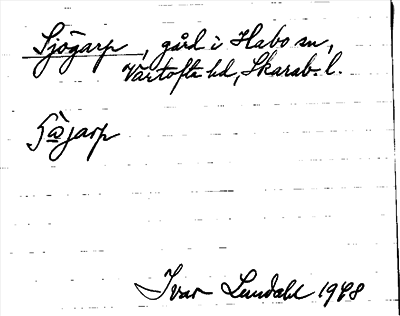 Sjögarp, gård i Habo sn,
Vartofta hd, Skarab. l.
Ivar Lundahl 1968